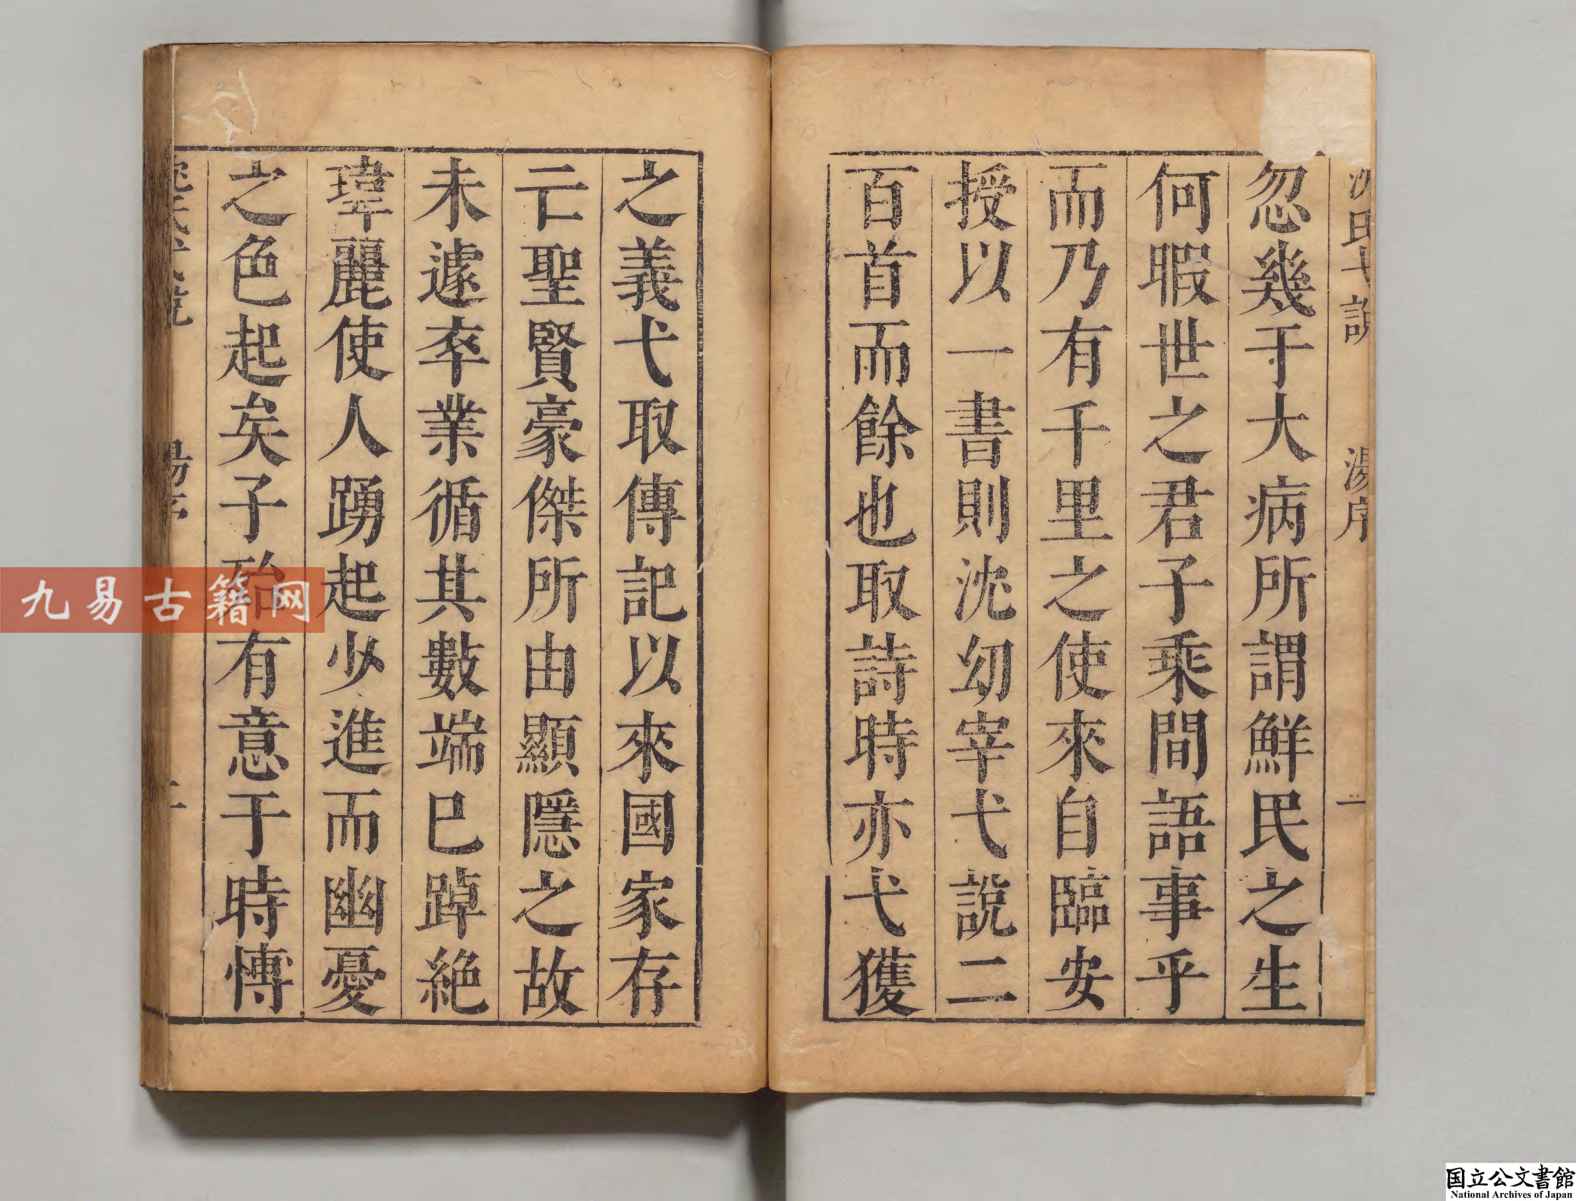 忽幾于大病所謂鮮民之生
何暇世之君子乘間語事乎
而乃有千里之使來自臨安
授以一書則沈幼宰弋說二
百首而餘也取詩時亦弋獲
之義弋取傳記以來國家存
亡聖賢豪傑所由顯隱之故
未遽卒業循其數端已踔絶
瑋麗使人踴起少進而幽憂
之色起矣子殆有意于時慱
沈氏弋說
湯序
一
九易古籍网
国立公文書館
National Archives of Japan